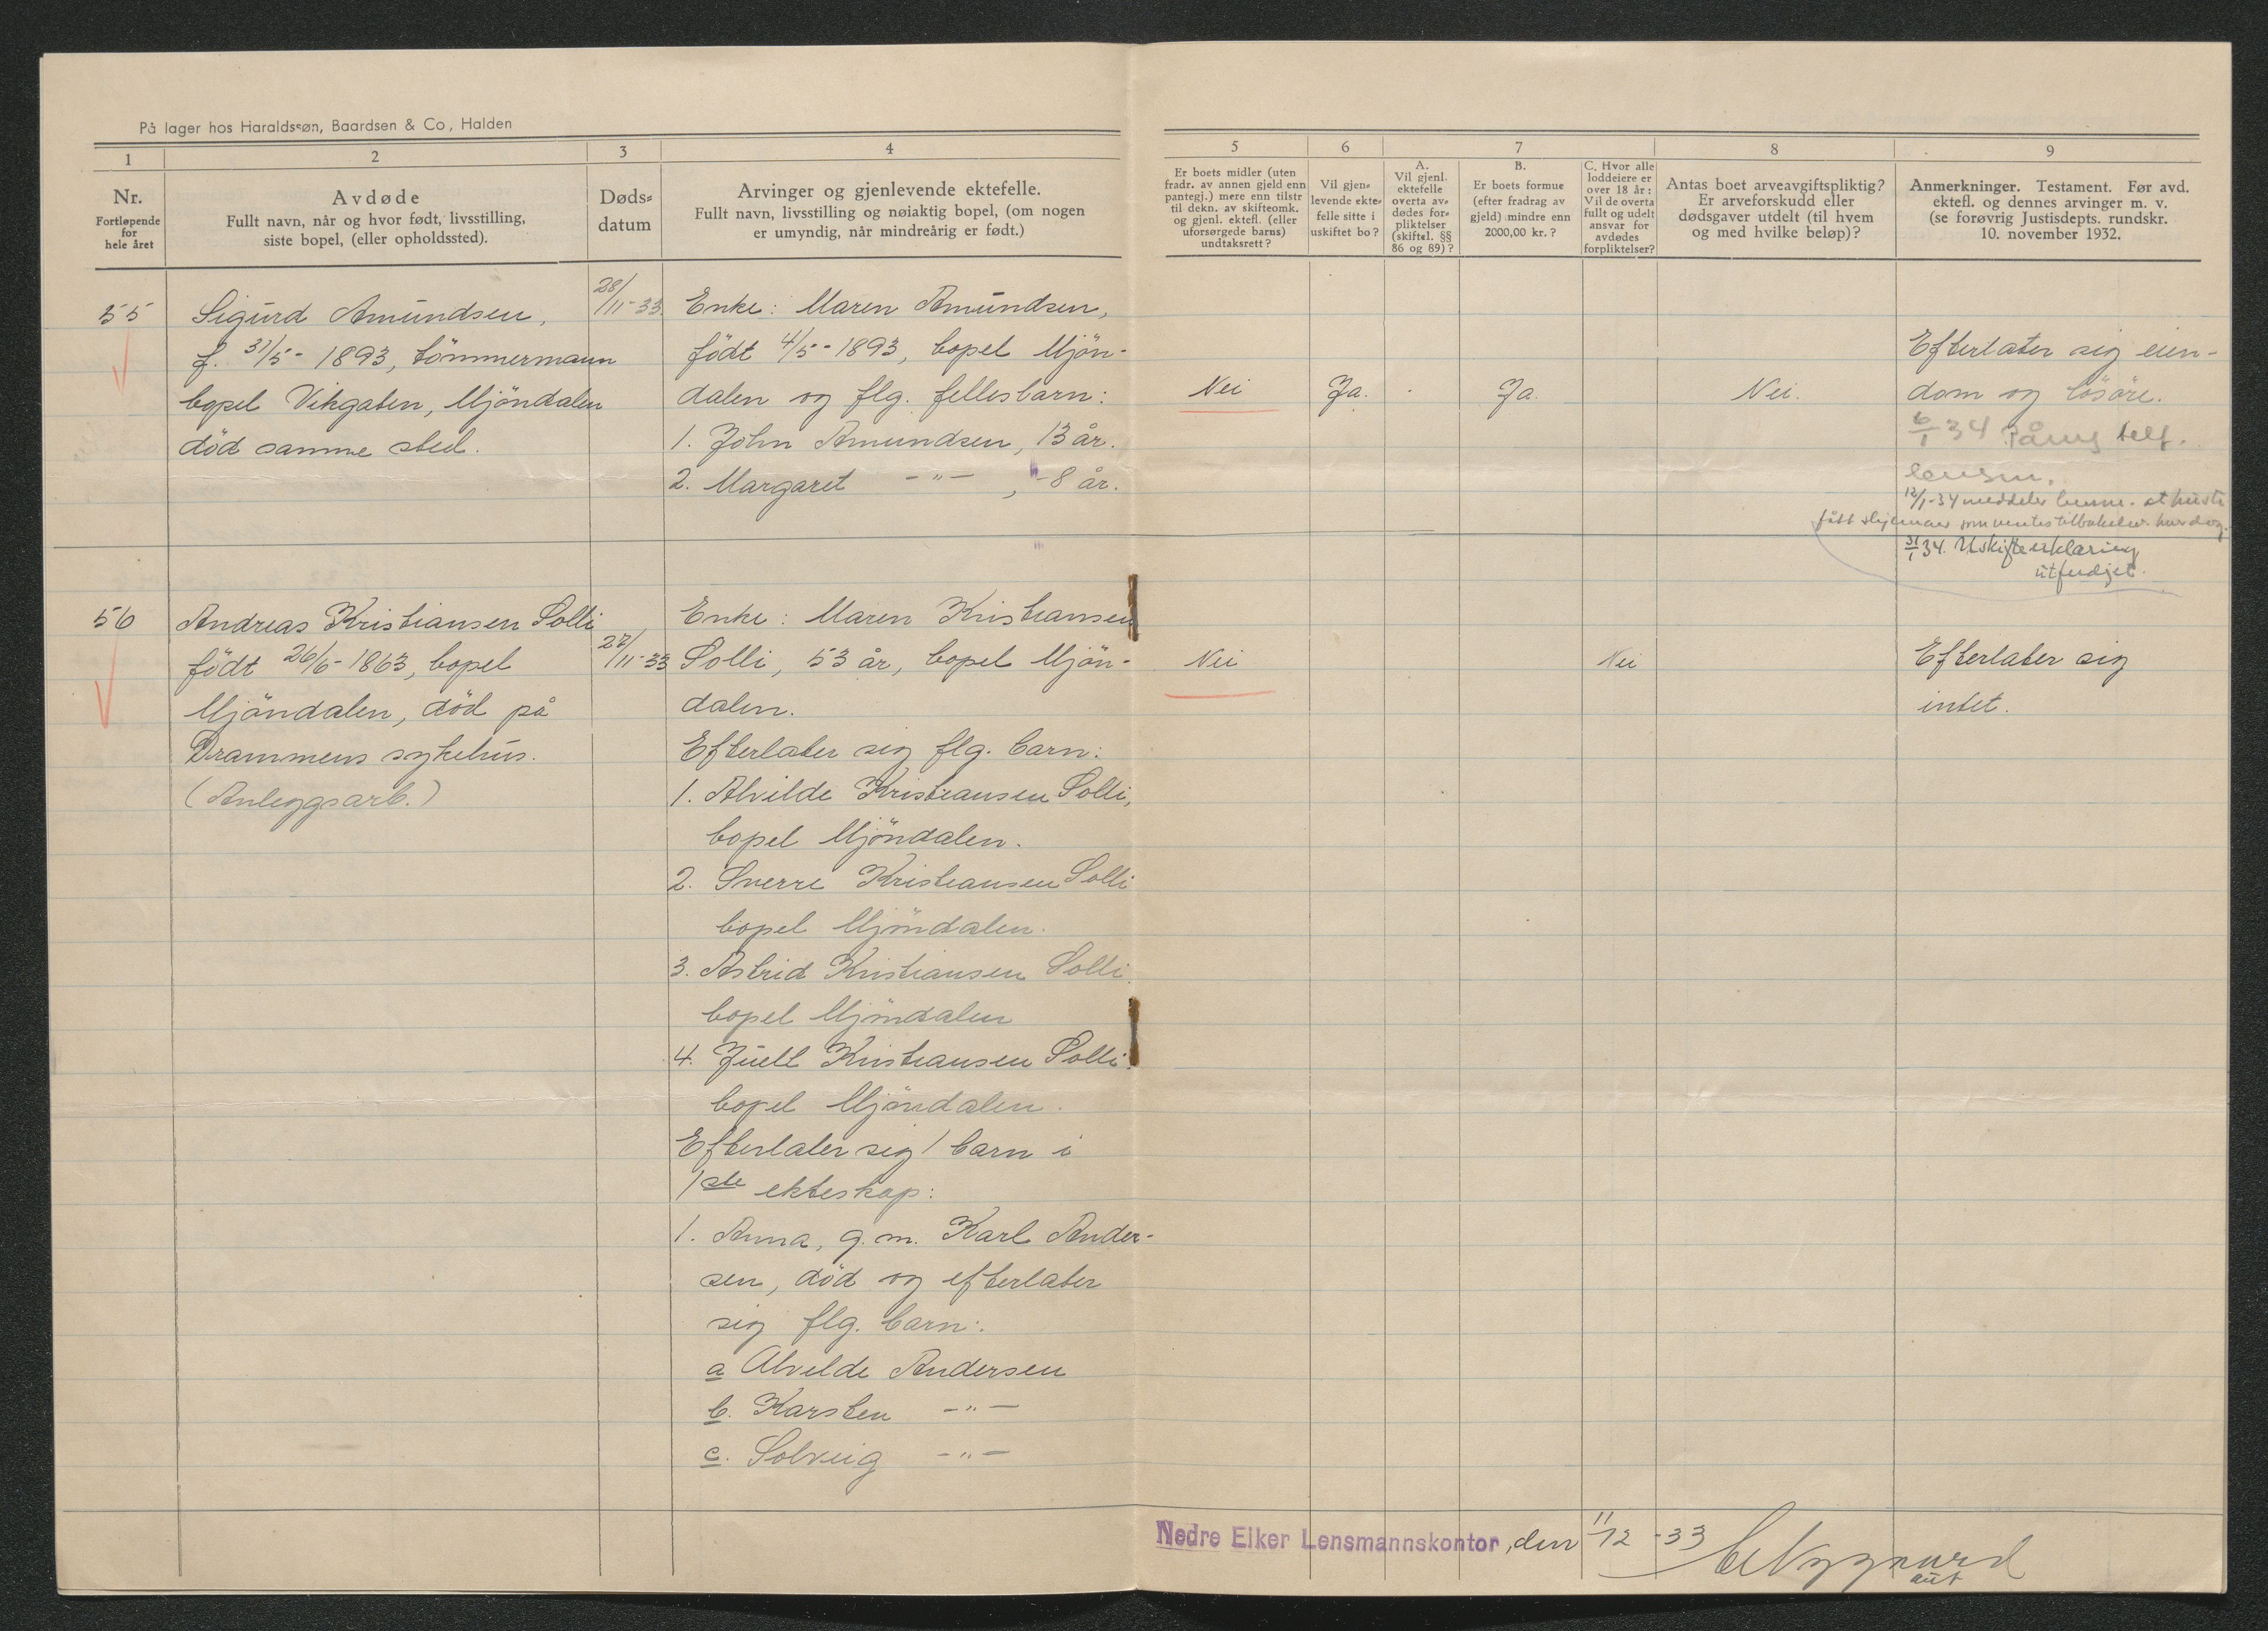 På lager hos Haraldssøn, Baardsen & Co, Halden
1 2 3 4 5 6 7 8 9
Nr.
Fortløpende
for
hele året
Avdøde
Fullt navn, når og hvor født, livsstilling,
siste bopel, (eller opholdssted).
Døds-
datum
Arvinger og gjenlevende ektefelle.
Fullt navn, livsstilling og nøiaktig bopel, (om nogen
er umyndig, når mindreårig er født.)
Er boets midler (uten
fradr. av annen gjeld enn
pantegj.) mere enn tilstr
til dekn. av skifteomk.
og gjenl. ektefl. (eller
uforsørgede barns)
undtaksrett?
Vil gjen-
levende ekte-
felle sitte i
uskiftet bo?
A.
Vil gjenl.
ektefelle
overta av-
dødes for-
pliktelser
(skiftel. §§
86 og 89)?
B.
Er boets formue
(efter fradrag av
gjeld) mindre enn
2000,00 kr.?
C. Hvor alle
loddeiere er
over 18 år:
Vil de overta
fullt og udelt
ansvar for
avdødes
forpliktelser?
Antas boet arveavgiftspliktig?
Er arveforskudd eller
dødsgaver utdelt (til hvem
og med hvilke beløp)?
Anmerkninger. Testament. Før avd.
ektefl. og dennes arvinger m. v.
(se forøvrig Justisdepts. rundskr.
10. november 1932.
55
Sigurd Amundsen,
f. 31/5- 1893, tömmermann
bopel Vikgaten, Mjöndalen
död samme sted.
28/11-33
Enke: Maren Amundsen,
födt 4/5-1893, bopel Mjön-
dalen og flg. fellesbarn:
1. John Amundsen, 13 år.
2. Margaret -"- , 8 år.
Nei
Ja.
Ja.
Nei.
Efterlater sig eien-
dom og lösöre.
6/1 34 telf.
lensm.
12/1-34 meddeler
31/1 34. Uskifteerklæring
utferdjet.
56
Andreas Kristiansen Solli
födt 26/6-1863, bopel
Mjöndalen, död på
Drammens sykehus.
(Anleggsarb.)
27/11-33
Enke: Maren Kristiansen
Solli, 53 år, bopel Mjön-
dalen.
Efterlater sig flg. barn:
1. Alvilde Kristiansen Solli,
bopel Mjöndalen.
2. Sverre Kristiansen Solli
bopel Mjöndalen.
3. Astrid Kristiansen Solli.
bopel Mjöndalen
4. Juell Kristiansen Solli.
bopel Mjöndalen.
Efterlater sig 1 barn i
1ste ekteskap:
1. Anna, g.m. Karl Ander-
sen, död og efterlater
sig flg. barn:
a Alvilde Andersen
b. Karsten -"-
c. Solveig -"-
Nei
Nei
Efterlater sig
intet.
Nedre Eiker Lensmannskontor, den 11/12 -33